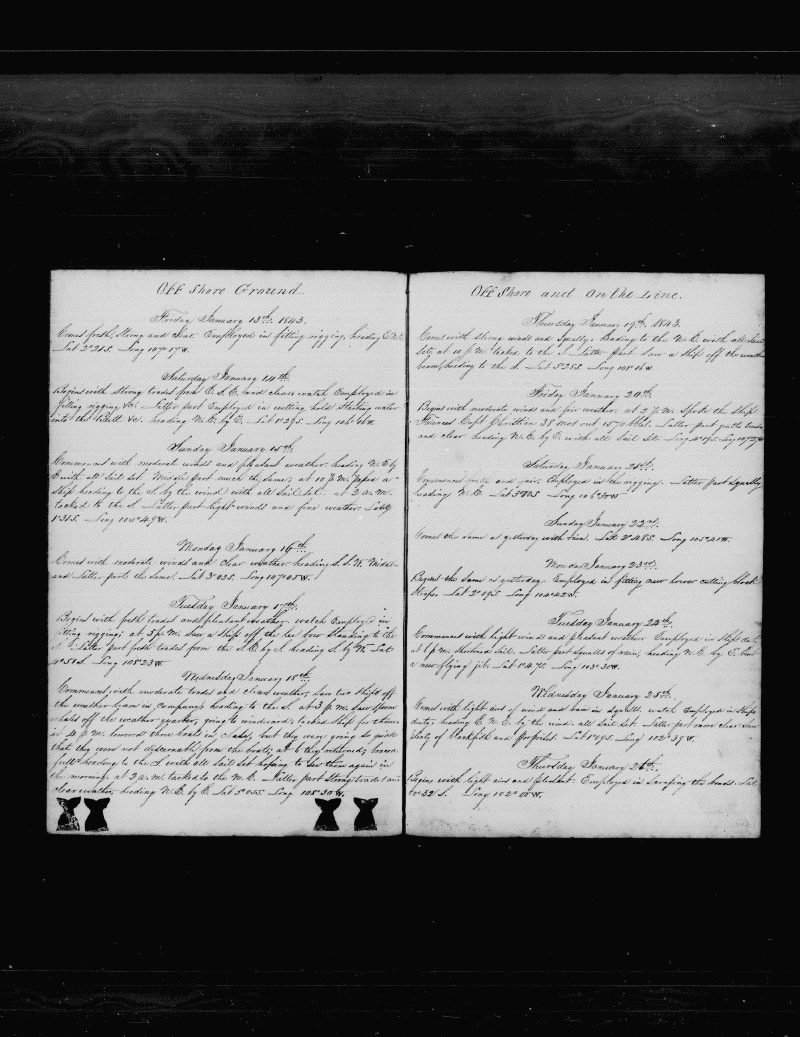 Off Shore Ground
Friday January 13th. 1843.
Comes fresh, Strong and clear. Employed in fitting rigging, heading E.N.E.
Lat 2°21S. Long 107°17W.
Saturday January 14th.
Begins with strong trades from E.S.E. and clear; watch Employed in
fitting rigging &c. Latter part Employed in cutting hold Starting water
into the Butt &c. heading N.E. by E. Lat 1°29S. Long 106°
Sunday January 15th.
Commences with moderate winds and pleasant weather heading N.E by
E with all Sail Set. Middle part much the same; at 10 P.M. passed a
Ship heading to the S. by the wind with all Sail Set. at 2 a.m.
tacked to the S. Latter part light winds and fine weather. Lat
1°31S. Long 105°49W.
Monday January 16th.
Comes with moderate winds and clear weather heading S.S.W. Middle
and Latter parts the Same. Lat 3°03S. Long 107°05W.
Tuesday January 17th.
Begins with fresh trades and pleasant weather. watch Employed in
fitting rigging; at 5 P.M. Saw a Ship off the lee bow Standing to the
S. Latter part fresh trades from the S.E. by S. heading S. by W. Lat
4°51S. Long 108°23W.
Wednesday January 18th.
Commences with moderate trades and clear weather, Saw two Ships off
the weather beam in Company heading to the S. at 3 P.M. Saw Sperm
whales off the weather quarter, going to windward; tacked Ship for them;
at 4 P.M. lowered three boats in chase, but they were going so quick
that they were not discernable from the boats; at 6 they returned; braced
full heading to the S. with all Sail Set hoping to See them again in
the morning. at 2 a.m. tacked to the N.E. Latter part Strong trades and
clear weather, heading N.E. by E. Lat 5°05S. Long 108°30W.
Off Shore and On the Line.
Thursday January 19th. 1843.
Comes with Strong winds and Squally. heading to the N.E. with all Sail
Set; at 10 P.M. tacked to the S. Latter part Saw a Ship off the weather
beam heading to the S. Lat 5°25S. Long 108°16W.
Friday January 20th.
Begins with moderate winds and fair weather. at 2 P.M. Spoke the Ship
Frances Capt Christian 38 mos out 1570 bbls. Latter part gentle trades
and clear heading N.E. by E. with all Sail St. Lat 4°19S. Long 107°27W.
Saturday January 21st.
Commences fresh and fair. Employed in the rigging. Latter part Squally
heading N.E. Lat 3°80S. Long 106°
Sunday January 22nd.
Comes the same as yesterday with rain. Lat 2°48S. Long 105°41W.
Monday January 23rd.
Begins the Same as yesterday. Employed in fitting new lower cutting block
Straps. Lat 2°09S. Long 104°42W.
Tuesday January 24th.
Commences with light winds and pleasant weather. Employed in Ships duty,
at 6 P.M. Shortend Sail. Latter part Squalls of rain, heading N.E. by E. bent
a new flying jib. Lat 1°47S. Long 103°30W.
Wednesday January 25th.
Comes with light airs of wind and rain in Squalls. watch Employed in Ships
duty, heading E.N.E. by the wind. all Sail Set. Latter part more clear Saw
plenty of blackfish and porpoises. Lat 1°09S. Long 102°39W.
Thursday January 26th.
Begins with light airs and pleasant. Employed in Scraping the bends. Lat
0°32S. Long 102°00W.